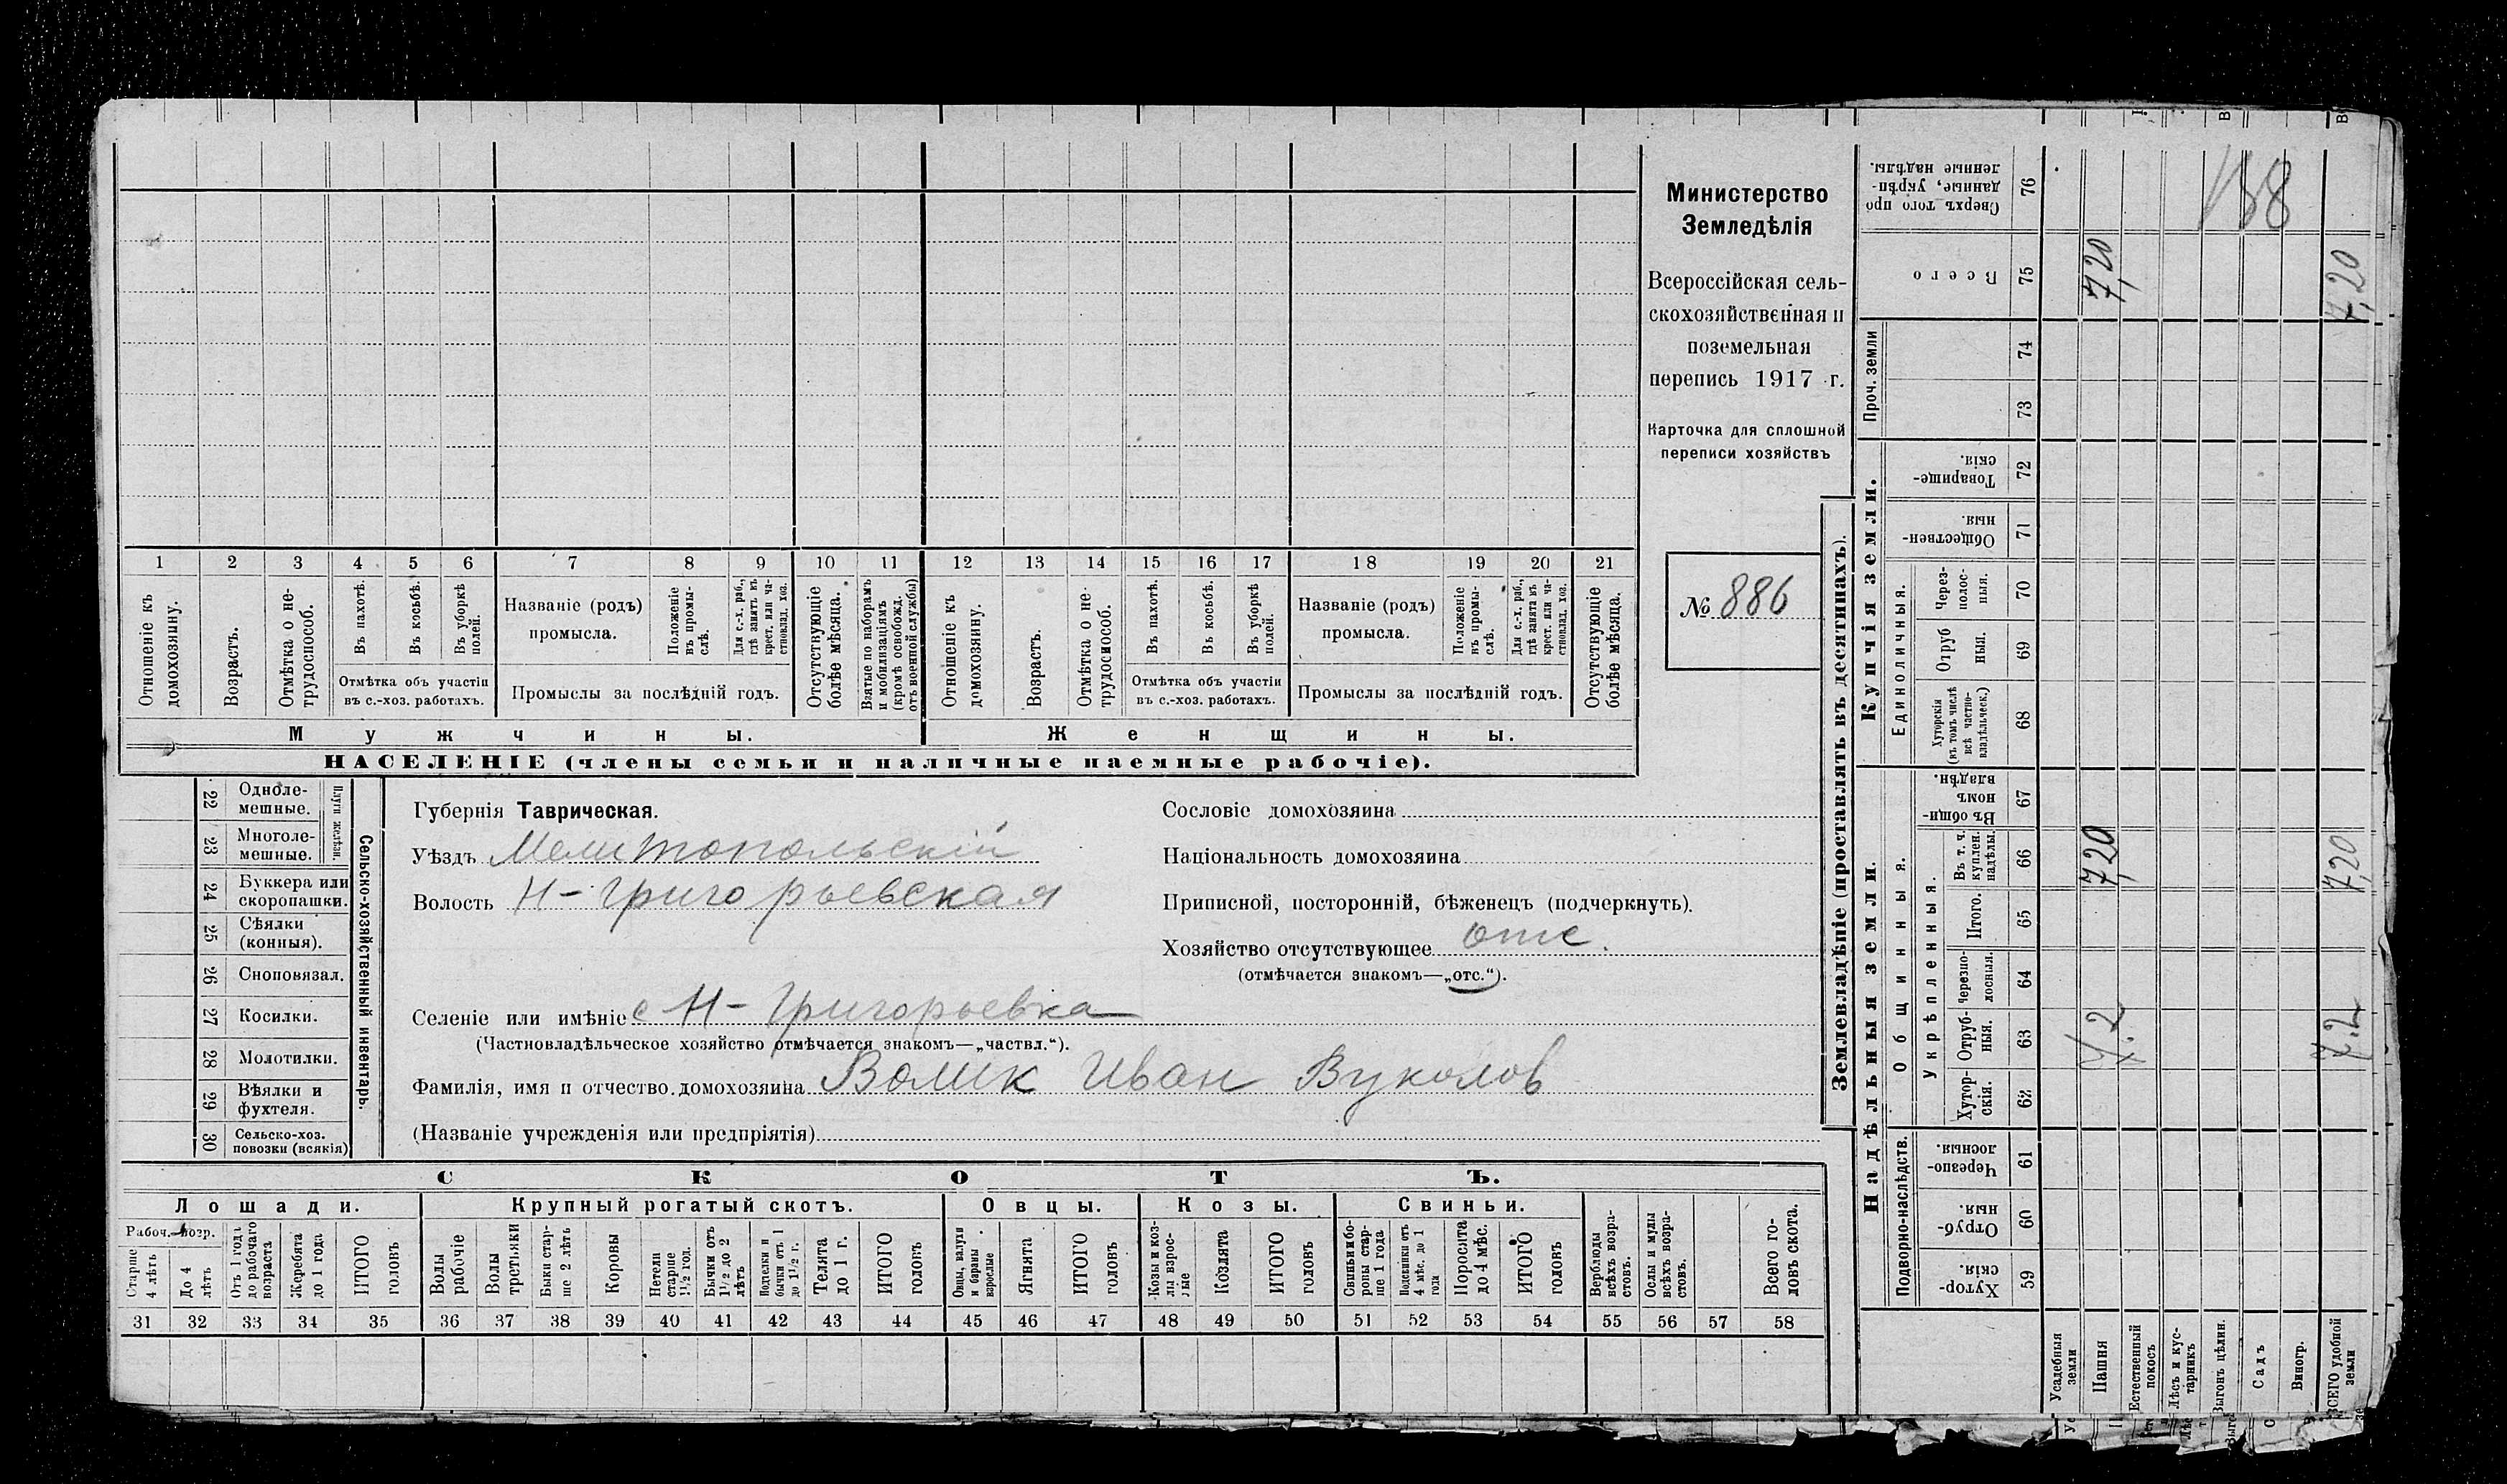 Министерство
Земледѣлія
Всероссійская сель-
скохозяйственная и
поземельная
перепись 1917 г.
Карточка для сплошной
переписи хозяйствъ
№ 886
1 2 3 4 5 6 7 8 9 10 11 12 13 14 15 16 17 18 19 20 21
Отношеніе къ домохозяину.
Возрастъ.
Отмѣтка о не-трудоспособ.
Въ пахотѣ.
Въ косьбѣ.
Въ уборкѣ полей.
Отмѣтка объ участіи
въ с.-хоз. работахъ.
Названіе (родъ)
промысла.
Положеніе въ промы-слѣ.
Для с.-х. раб., гдѣ занятъ въ крест. или ча-стновлад. хоз.
Промыслы за послѣдній годъ.
Отсутствующіе болѣе мѣсяца.
Взятые по наборамъ и мобилизаціямъ (кромѣ освобожд. отъ военной службы)
Отношеніе къ домохозяину.
Возрастъ.
Отмѣтка о не-трудоспособ.
Въ пахотѣ.
Въ косьбѣ.
Въ уборкѣ полей.
Отмѣтка объ участіи
въ с.-хоз. работахъ.
Названіе (родъ)
промысла.
Положеніе въ промы-слѣ.
Для с.-х. раб., гдѣ занята въ крест. или ча-стновлад. хоз.
Промыслы за послѣдній годъ.
Отсутствующіе болѣе мѣсяца.
Мужчины.
Женщины.
НАСЕЛЕНІЕ (члены семьи и наличные наемные рабочіе).
22 Одноле-мешные.
23 Многоле-мешные.
Плуги желѣзн.
24 Буккера или скоропашки.
25 Сѣялки (конныя).
26 Сноповязал.
27 Косилки.
28 Молотилки.
29 Вѣялки и фухтеля.
30 Сельско-хоз. повозки (всякія)
Сельско-хозяйственный инвентарь.
Губернія Таврическая.
Уѣздъ Мелитопольскій
Волость Н-Григорьевская
Селеніе или имѣніе с Н-Григорьевка
(Частновладѣльческое хозяйство отмѣчается знакомъ—„частвл.“).
Фамилія, имя и отчество домохозяина Волик Иван Вуколов
(Названіе учрежденія или предпріятія)
Сословіе домохозяина
Національность домохозяина
Приписной, посторонній, бѣженецъ (подчеркнуть).
Хозяйство отсутствующее отс.
(отмѣчается знакомъ—„отс.“).
СКОТЪ.
Лошади.
Крупный рогатый скотъ.
Овцы.
Козы.
Свиньи.
Рабоч. возр.
Старше 4 лѣтъ
До 4 лѣтъ
Отъ 1 года до рабочаго возраста
Жеребята до 1 года
ИТОГО головъ
Волы рабочіе
Волы третьяки
Быки стар-ше 2 лѣтъ
Коровы
Нетели старше 1½ год.
Бычки отъ 1½ до 2 лѣтъ
Подтелки и бычки отъ 1 до 1½ г.
Телята до 1 г.
ИТОГО головъ
Овцы, валухи и бараны взрослые
Ягнята
ИТОГО головъ
Козы и коз-лы взрос-лые
Козлята
ИТОГО головъ
Свиньи и бо-ровы стар-ше 1 года
Подсвинки отъ 4 мѣс. до 1 года
Поросята до 4 мѣс.
ИТОГО головъ
Верблюды всѣхъ возра-стовъ.
Ослы и мулы всѣхъ возра-стовъ.
Всего го-ловъ скота.
31 32 33 34 35 36 37 38 39 40 41 42 43 44 45 46 47 48 49 50 51 52 53 54 55 56 57 58
Землевладѣніе (проставлять въ десятинахъ).
Надѣльныя земли.
Купчія земли.
Проч. земли
Подворно-наслѣдств.
Общинныя.
Укрѣпленныя.
Единоличныя.
Хутор-скія 59
Отруб-ныя. 60
Черезпо-лосныя. 61
Хутор-скія. 62
Отруб-ныя. 63
Черезпо-лосныя. 64
Итого. 65
Въ т. ч. куплен. надѣлы. 66
Въ общи-номъ владѣн. 67
Хуторскія (въ томъ числѣ всѣ частно-владѣльческ.) 68
Отруб ныя. 69
Через-полос-ныя. 70
Обществен-ныя. 71
Товарище-скія. 72
73
74
Всего 75
Сверхъ того про данные, укрѣп-ленные надѣлы. 76
Усадебныя земли
Пашня 7,2 7,20 7,20
Естественный покосъ
Лѣсъ и кус-тарникъ
Выгонъ цѣлин.
Садъ
Виногр.
ВСЕГО удобной земли 7.2 7,20 7,20